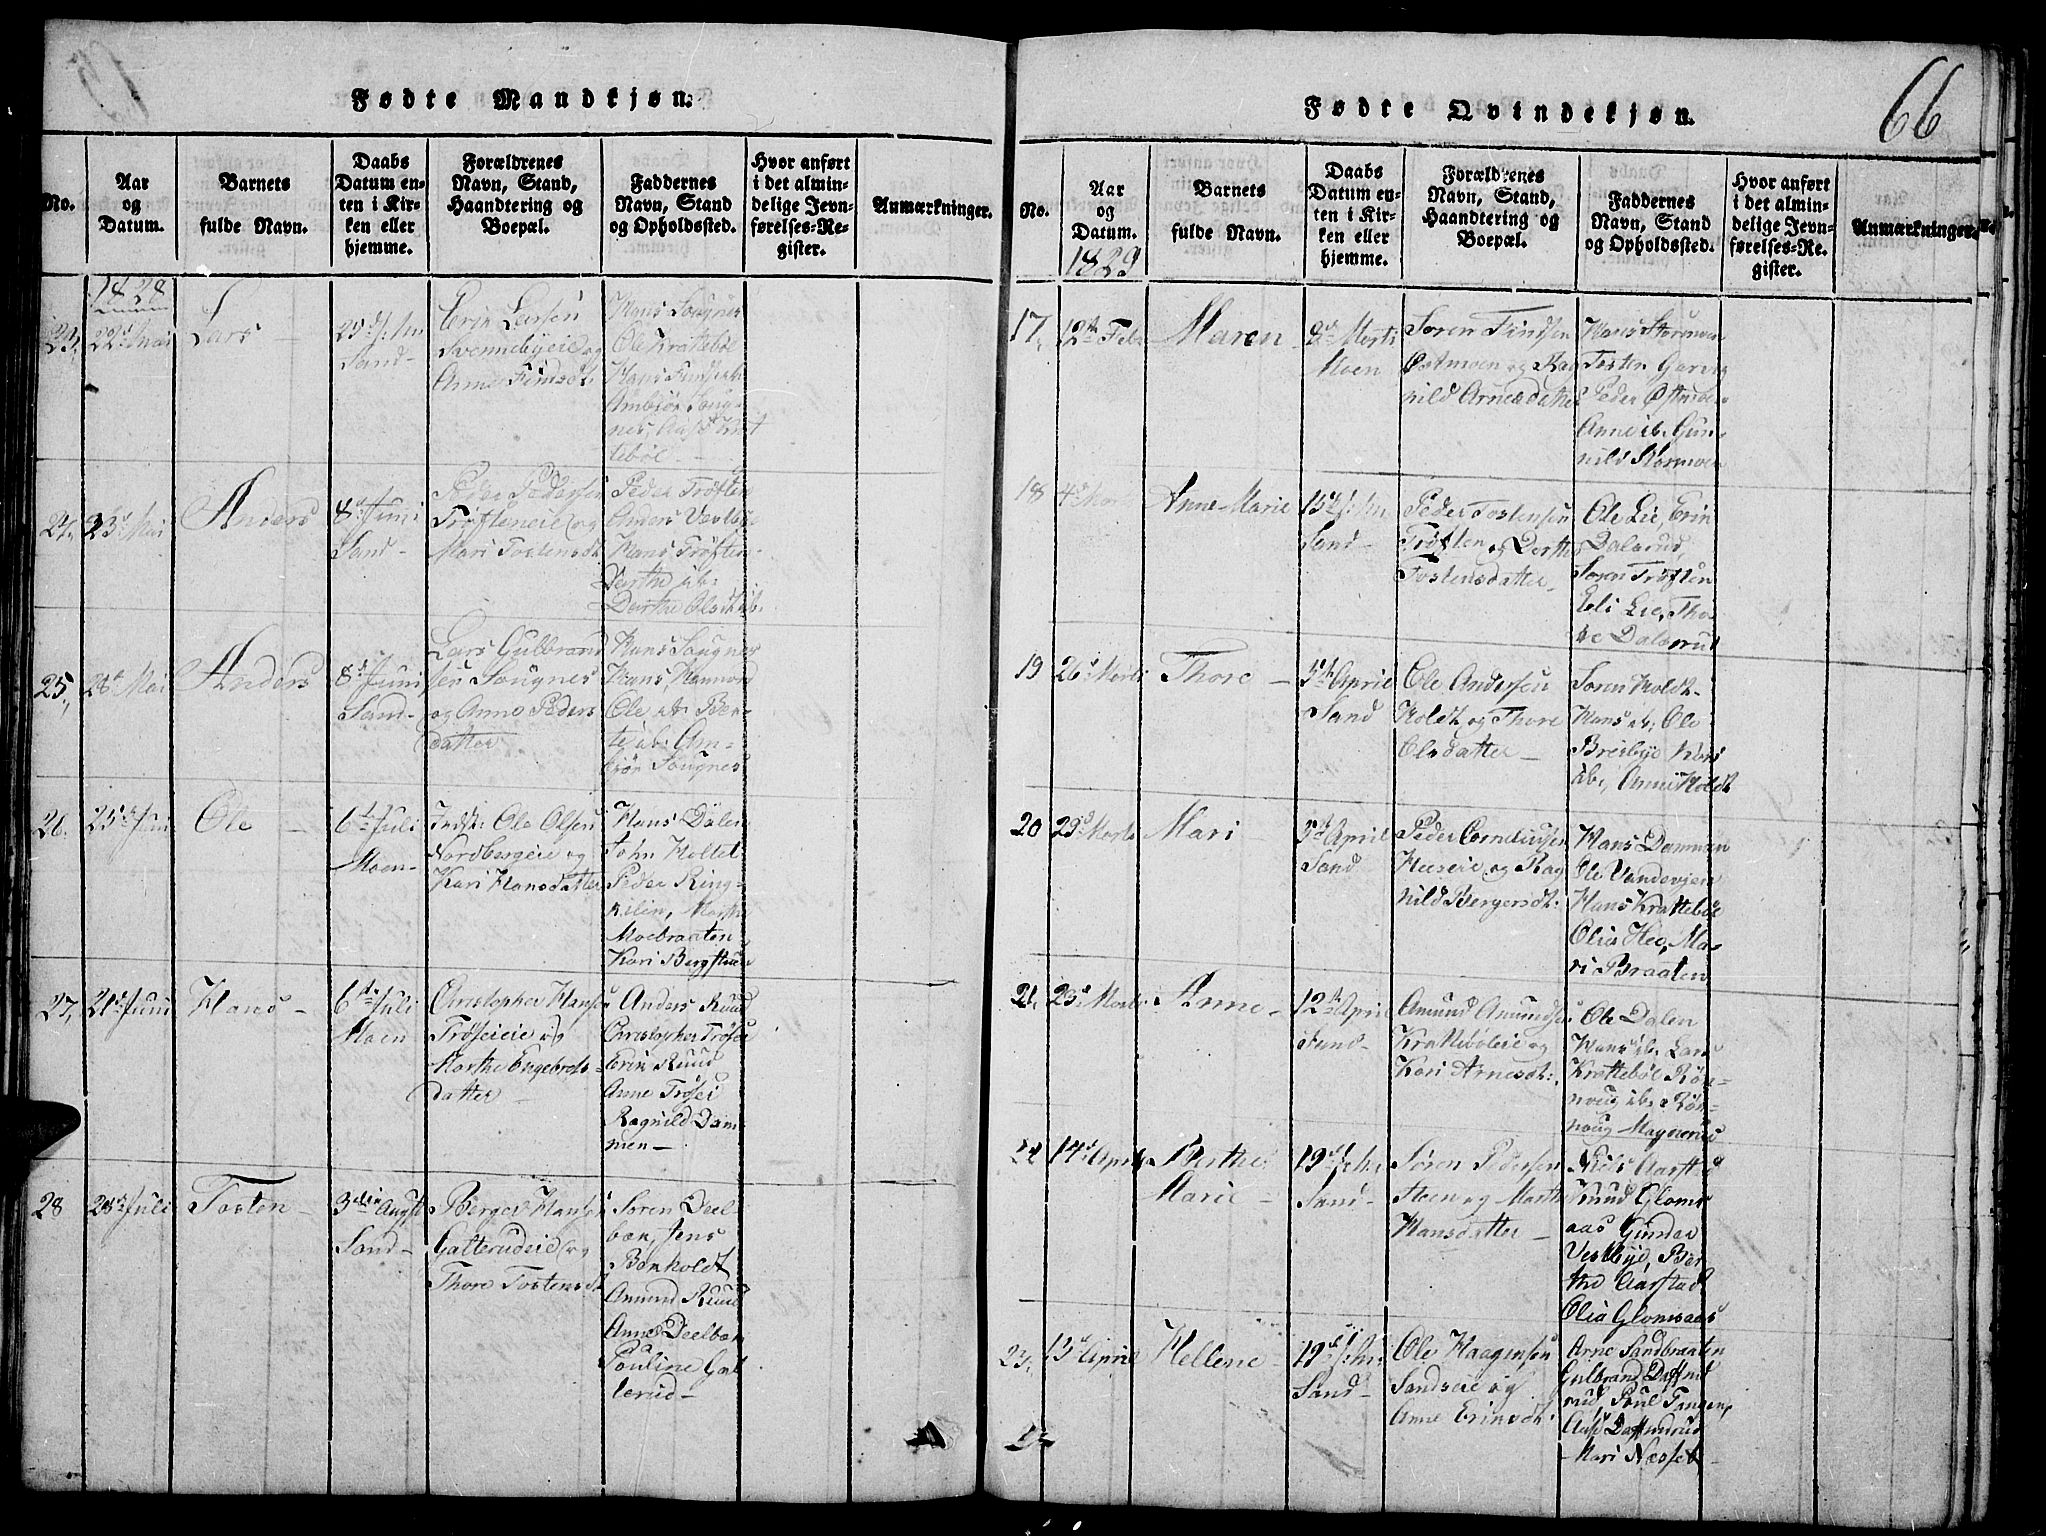 Fødte Mandkjøn.
No.
Aar
og
Datum.
Barnets
fulde Navn.
Daabs
Datum en-
ten i Kir-
ken eller
hjemme.
Forældrenes
Navn, Stand,
Haandtering og
Boepæl.
Faddernes
Navn, Stand
og Opholdssted.
Hvor anført
i det almin-
delige Jevn-
førelses-Re-
gister.
Anmærkninger.
1828
23, 22d Mai
Lars
25d
Sand
Erik Larsen
Svennebyeie og
Anne Finsdt.
Hans Sougnes
Ole Krattebøl
Hans
Ambiør Soug-
nes,
tebøl
24, 23d Mai
Anders
8d Juni
Sand
Peder Pedersen
Trøfteneie og
Mari Tostensdt
Peder Trøften
Anders Vestbye
Hans Trøften
Berthe ib.
Berthe Olsdt ib.
25, 28d Mai
Anders
8d Juni
Sand
Lars Gulbrand
sen Sougnes
og Anne Peders
datter
Hans Sougnes
Hans
Ole ib. Ber-
te ib. Am-
biør Sougnes
26. 25d Juni
Ole
6d Juli
Moen
Indst: Ole Olsen
Nordbergeie og
Kari Hansdatter
Hans Dalen
John Holtet
Peder Ring-
kilin, Marthe
Moebraaten
Kari
27, 21d Juni
Hans
6d Juli
Moen
Christopher Hansen
Trøseieie og
Marthe Engebrets
datter
Anders Ruud
Christopher Trøsei
Erik Ruud
Anne Trøsei
Ragnild Dam-
men
28 28d Juli
Tosten
3die Augst
Sand
Berger Hansen
Galterudeie og
Thore Tostensdt
Søren Deel
bæk, Jens
Bonholdt
Amund Ruud
Anne Deelbæk
Pauline Gal
terud
66
Fødte Qvindekjøn.
No.
Aar
og
Datum.
Barnets
fulde Navn.
Daabs
Datum en-
ten i Kir-
ken eller
hjemme.
Forældrenes
Navn, Stand,
Haandtering og
Boepæl.
Faddernes
Navn, Stand
og Opholdssted.
Hvor anført
i det almin-
delige Jevn-
førelses-Re-
gister.
Anmærkninger.
1829
17, 12te Feb
Maren
8d Marti
Moen
Søren Findsen
Østmoen og Rag
nild Arnesdatter
Hans Stormoen
Tosten
Peder
Anne ib. Gun-
nild Stormoen
18 4d Marti
Anne Marie
15d
Sand
Peder Tostensen
Trøften og Berthe
Tostensdatter
Ole Lie, Erik
Dalsrud,
Søren Trøften
Eli Lie, Tho
re Dalsrud
19 26d Marti
Thore
5d April
Sand
Ole Andersen
Holdt og Thore
Olsdatter
Søren Holdt
Hans ib. Ole
Breibye Kari
ib. Anne Holdt
20 29d Marti
Mari
5d April
Sand
Peder Corneliusen
Heeseie og Rag
nild Bergersdt:
Hans Dammen
Ole
Hans Krattebøl
Olia Hee, Ma-
ri Braaten
21, 23d Marti
Anne
12te April
Sand
Amund Amundsen
Krattebøleie og
Kari Arnesdt:
Ole Dalen
Hans ib. Lars
Krattebøl Røn-
noug ib. Røn-
noug Magnæus
22 14d April
Berthe
Marie
19d
Sand
Søren Pedersen
Steen og Marthe
Hansdatter
Niels Aarstad
Knud Gloms
aas Gunder
Vestbye, Ber
the Aarstad
Olia Glomsaas
23, 13d April
Hellene
19d
Sand
Ole Haagensen
Sandseie og
Anne Eriksdt:
Arne Sandbraaten
Gulbrand
rud, Poul Tangen,
Mari Næsset